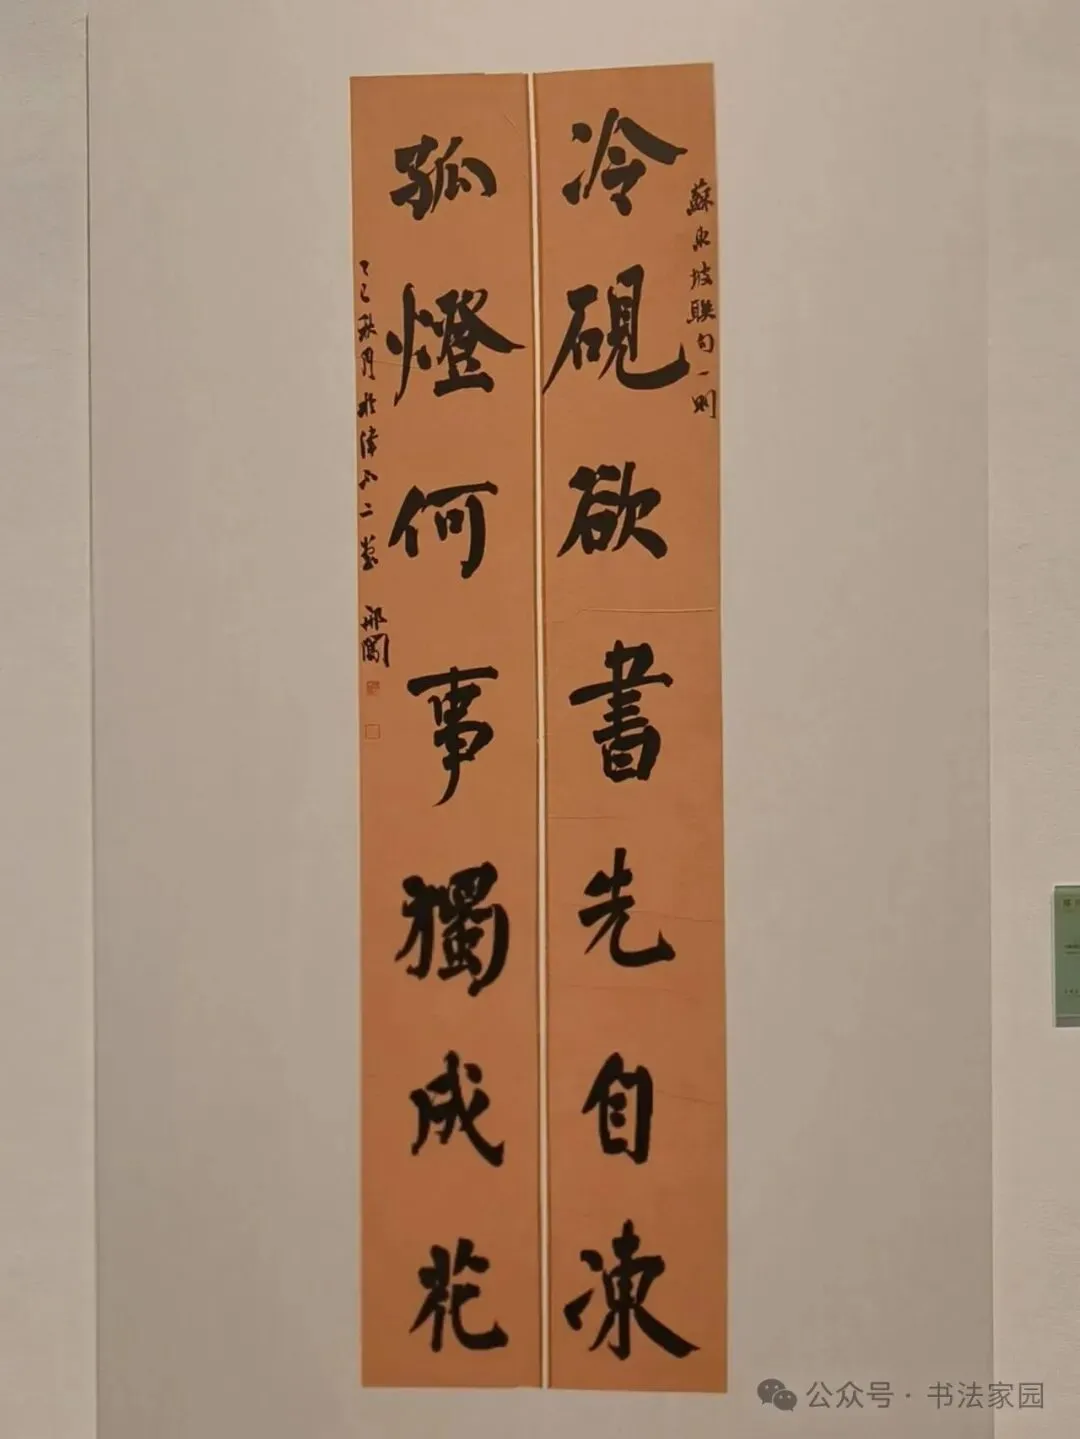 蘇東坡聯句一則
冷硯欲書先自凍
孤燈何事獨成花
乙巳秋月於津不二堂 邢閣
公众号·书法家园